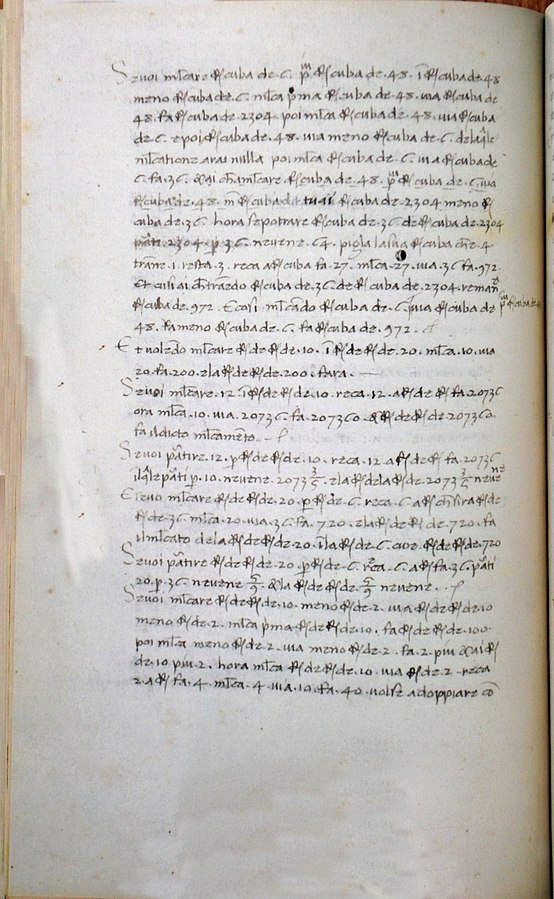 Se voi mlcare R cuba de .6. p̄m R cuba de .48. ī R cuba de .48
meno R cuba de .6. mlca p̄ma R cuba de .48. via R cuba de
48. fa R cuba de .2304. poi mlca R cuba de .48. via R cuba
de .6. e poi R cuba de .48. via meno R cuba de .6. de laq̄le
mlcatione arai nulla poi mlca R cuba de .6. via R cuba de
.6. fa .36. mlcare R cuba de .48. p̄m R cuba de .6. via
R cuba de .48. m̄ R cuba de R cuba de .2304 meno R
cuba de .36. hora se potrare R cuba de .36. de R cuba de .2304
p̄ti .2304. p .36. nevene .64. piglia la sua R cuba che .4
tranne .1. resta .3. reca a R cuba fa .27. mlca .27. via .36. fa .972.
Et cusi R cuba de .36. de R cuba de .2304. reman
R cuba de .972. E cosi mlcando R cuba de .6. via R cuba de
48. fa meno R cuba de .6. fa R cuba de .972.
Et volēdo mlcare R de R de .10. ī R de R de .20. mlca .10. via
20. fa .200. e la R de R de .200. fara.
Se voi mlcare .12. ī R de R de .10. reca .12. a R de R fa .20736
ora mlca .10. via .20736. fa .207360. R de R de .207360.
fa il dicto mlcamēto.
Se voi p̄tire .12. p R de R de .10. reca .12 a R de R fa .20736
ilq̄le p̄ti p .10. nevene .2073 3/5. e la R de la R de .2073 3/5 nevene
E se vo mlcare R de R de .20. p R de .6. reca .6. a R R de
R de .36. mlca .20. via .36. fa .720. e la R de R de .720. fa
il mlcato de la R de R de .20. ī la R de .6. cioe. R de R de .720
Se voi p̄tire R de R de .20. p R de .6. reca .6. a R fa .36. p̄ti
20. p .36. nevene 5/9 & la R de R de 5/9 nevene.
Se voi mlcare R de R de .10. meno R de .2. via R de R de .10
meno R de .2. mlca p̄ma R de R de .10. fa R de R de .100.
poi mlca meno R de .2. via meno R de .2. fa .2. piu R
de .10 piu .2. hora mlca R de R de .10. via R de .2. reca
2. a R fa .4. mlca .4. via .10. fa .40. volse adoppiare